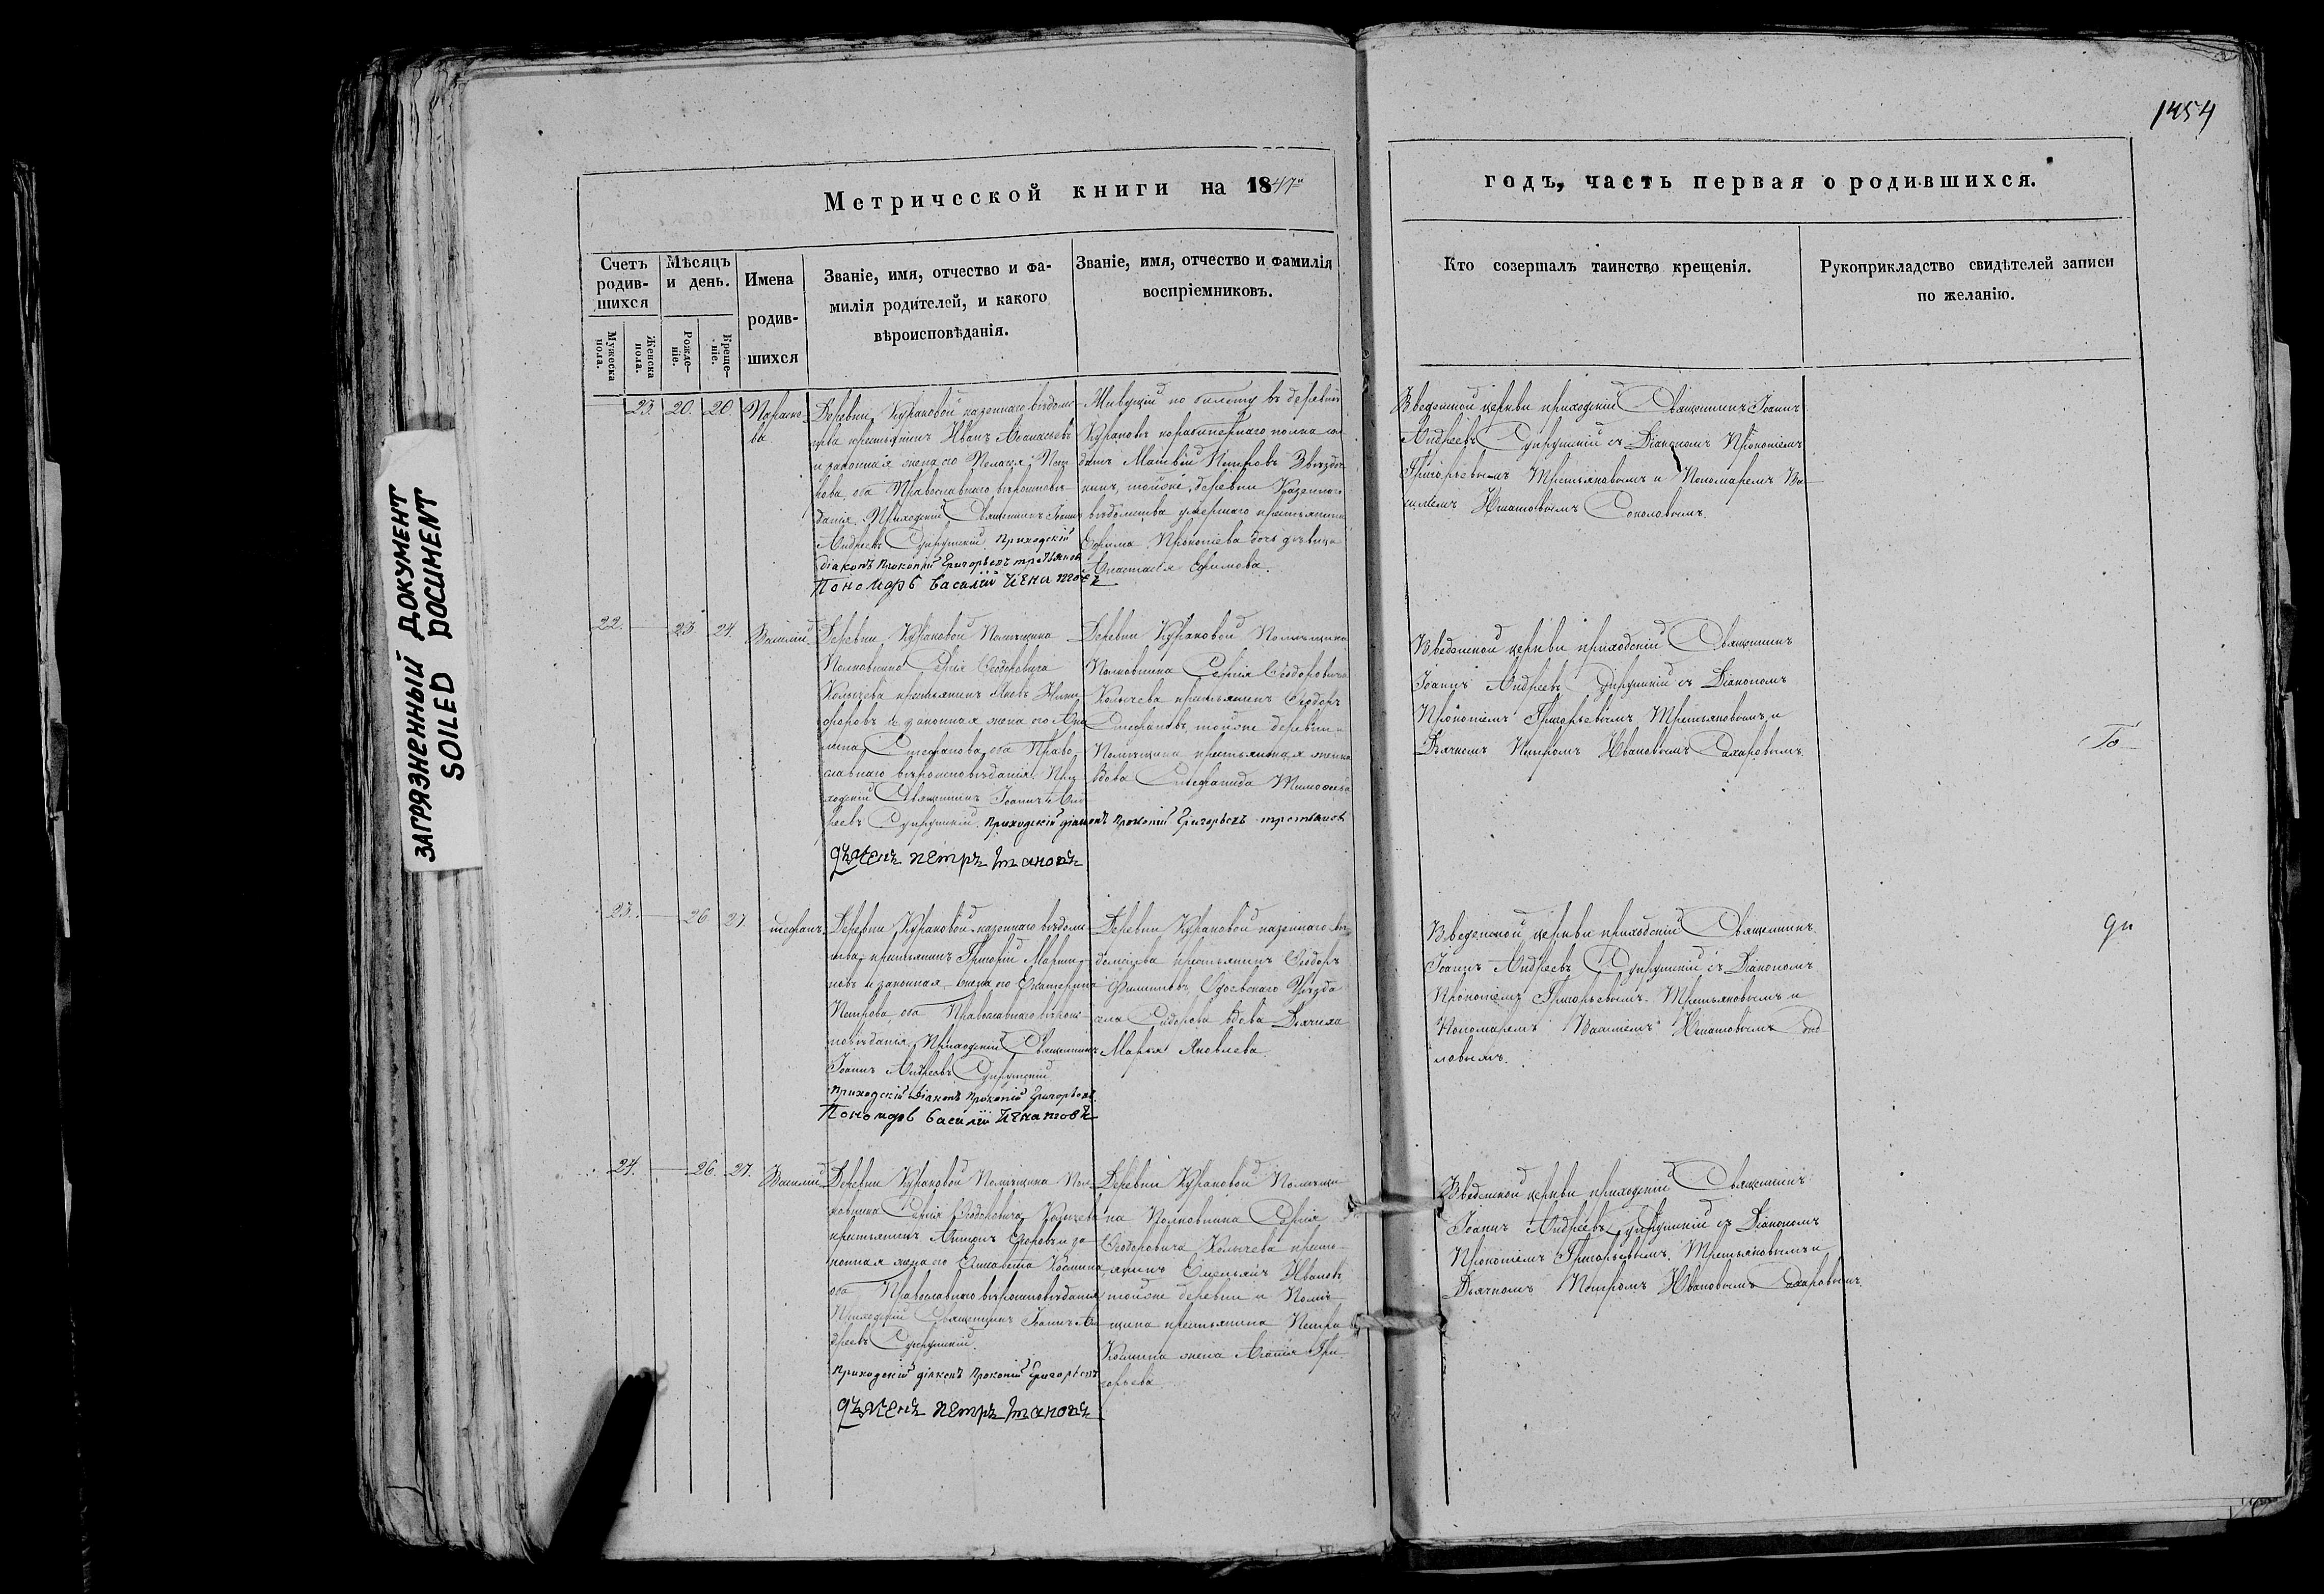 1454
ЗАГРЯЗНЕННЫЙ ДОКУМЕНТ
SOILED DOCUMENT
Метрической книги на 1847й
годъ, часть первая о родившихся.
Счетъ родив-
шихся
Мужеска пола.
Женска пола.
Мѣсяцъ
и день.
Рожде-
ніе.
Креще-
ніе.
Имена
родив-
шихся
Званіе, имя, отчество и фа-
милія родителей, и какого
вѣроисповѣданія.
Званіе, имя, отчество и фамилія
воспріемниковъ.
Кто созершалъ таинство крещенія.
Рукоприкладство свидѣтелей записи
по желанію.
23. 20. 20. Параске-
ва
Деревни Кураковой казеннаго вѣдомс-
тва крестьянинъ Иванъ Аѳанасьевъ
и законная жена его Пелагея Пет-
рова, оба Православнаго вѣроисповѣ-
данія. Приходскій Священникъ Іоаннъ
Андреевъ
Приходскій
діаконъ Прокопій Григорьевъ третьяковъ
Пономарь Василій Игнатовъ
Живущій по билету въ деревнѣ
Кураковѣ полка сол-
датъ Матвѣй Петровъ
тойже деревни Казеннаго
вѣдомства умершаго крестьянина
Ефима Прокопіева дочь дѣвица
Анастасія Ефимова.
Введенской церкви приходскій Священникъ Іоаннъ
Андреевъ съ Діакономъ Прокопіемъ
Григорьевымъ Третьяковымъ и Пономаремъ Ва-
силіемъ Игнатовымъ Соколовымъ.
22. 23 24. Василий.
Деревни Кураковой Помѣщика
Полковника Сергія Ѳеодоровича
Колычева крестьянинъ Яковъ Ники-
форовъ и законная жена его
Стефанова, оба Право-
славнаго вѣроисповѣданія. При-
ходскій Священникъ Іоаннъ Анд-
реевъ
Приходскій діаконъ Прокопій Григорьевъ третьяковъ
дьячекъ петръ Ивановъ
Деревни Кураковой Помѣщика
Полковника Сергія Ѳеодоровича
Колычева крестьянинъ Ѳеодоръ
Стефановъ, тойже деревни и
Помѣщика крестьянская женка
вдова Стефанида Тимоѳеева
Введенской церкви приходскій Священникъ
Іоаннъ Андреевъ съ Діакономъ
Прокопіемъ Григорьевымъ Третьяковымъ и
Дьячкомъ Петромъ Ивановымъ Сахаровымъ.
То
23. 26 27.
Деревни Кураковой казеннаго вѣдомс-
тва крестьянинъ Григорій Марти-
новъ и законная жена его Екатерина
Петрова, оба Православнаго вѣроис-
повѣданія. Приходскій Священникъ
Іоаннъ Андреевъ
Приходскій Діаконъ Прокопій Григорьевъ
Пономарь Василій Игнатовъ
Деревни Кураковой казеннаго вѣ-
домства крестьянинъ Ѳеодоръ
Филиповъ, Одоевскаго Уѣзда
села Сидорова вдова Дьячиха
Марья Яковлева.
Введенской церкви приходскій Священникъ
Іоаннъ Андреевъ съ Діакономъ
Прокопіемъ Григорьевымъ Третьяковымъ и
Пономаремъ Василіемъ Игнатовымъ Соко-
ловымъ.
24. 26. 27. Василий
Деревни Кураковой Помѣщика Пол-
ковника Сергія Ѳеодоровича Колычева
крестьянинъ Антонъ Егоровъ и за-
конная жена его Елисавета Космина
оба Православнаго вѣроисповѣданія
Приходскій Священникъ Іоаннъ Ан-
дреевъ
Приходскій діаконъ Прокопій Григорьевъ
дьячекъ петръ Ивановъ
Деревни Кураковой Помѣщи-
ка Полковника Сергія
Ѳеодоровича Колычева кресть-
янинъ Емельянъ Ивановъ,
тойже деревни и Помѣ-
щика крестьянина Петра
Космина жена Агафія Гри-
горьева.
Введенской церкви приходскій Священникъ
Іоаннъ Андреевъ съ Діакономъ
Прокопіемъ Григорьевымъ Третьяковымъ и
Дьячкомъ Петромъ Ивановымъ Сахаровымъ.